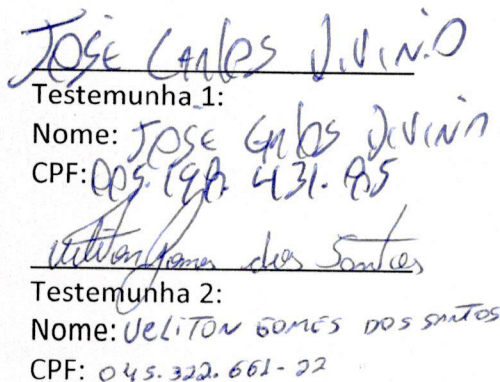 JOSE CARLOS DIVINO
Testemunha 1:
Nome: JOSE CARLOS DIVINO
CPF: 005.198.431.85
Veliton Gomes dos Santos
Testemunha 2:
Nome: VELITON GOMES DOS SANTOS
CPF: 045.322.661-22